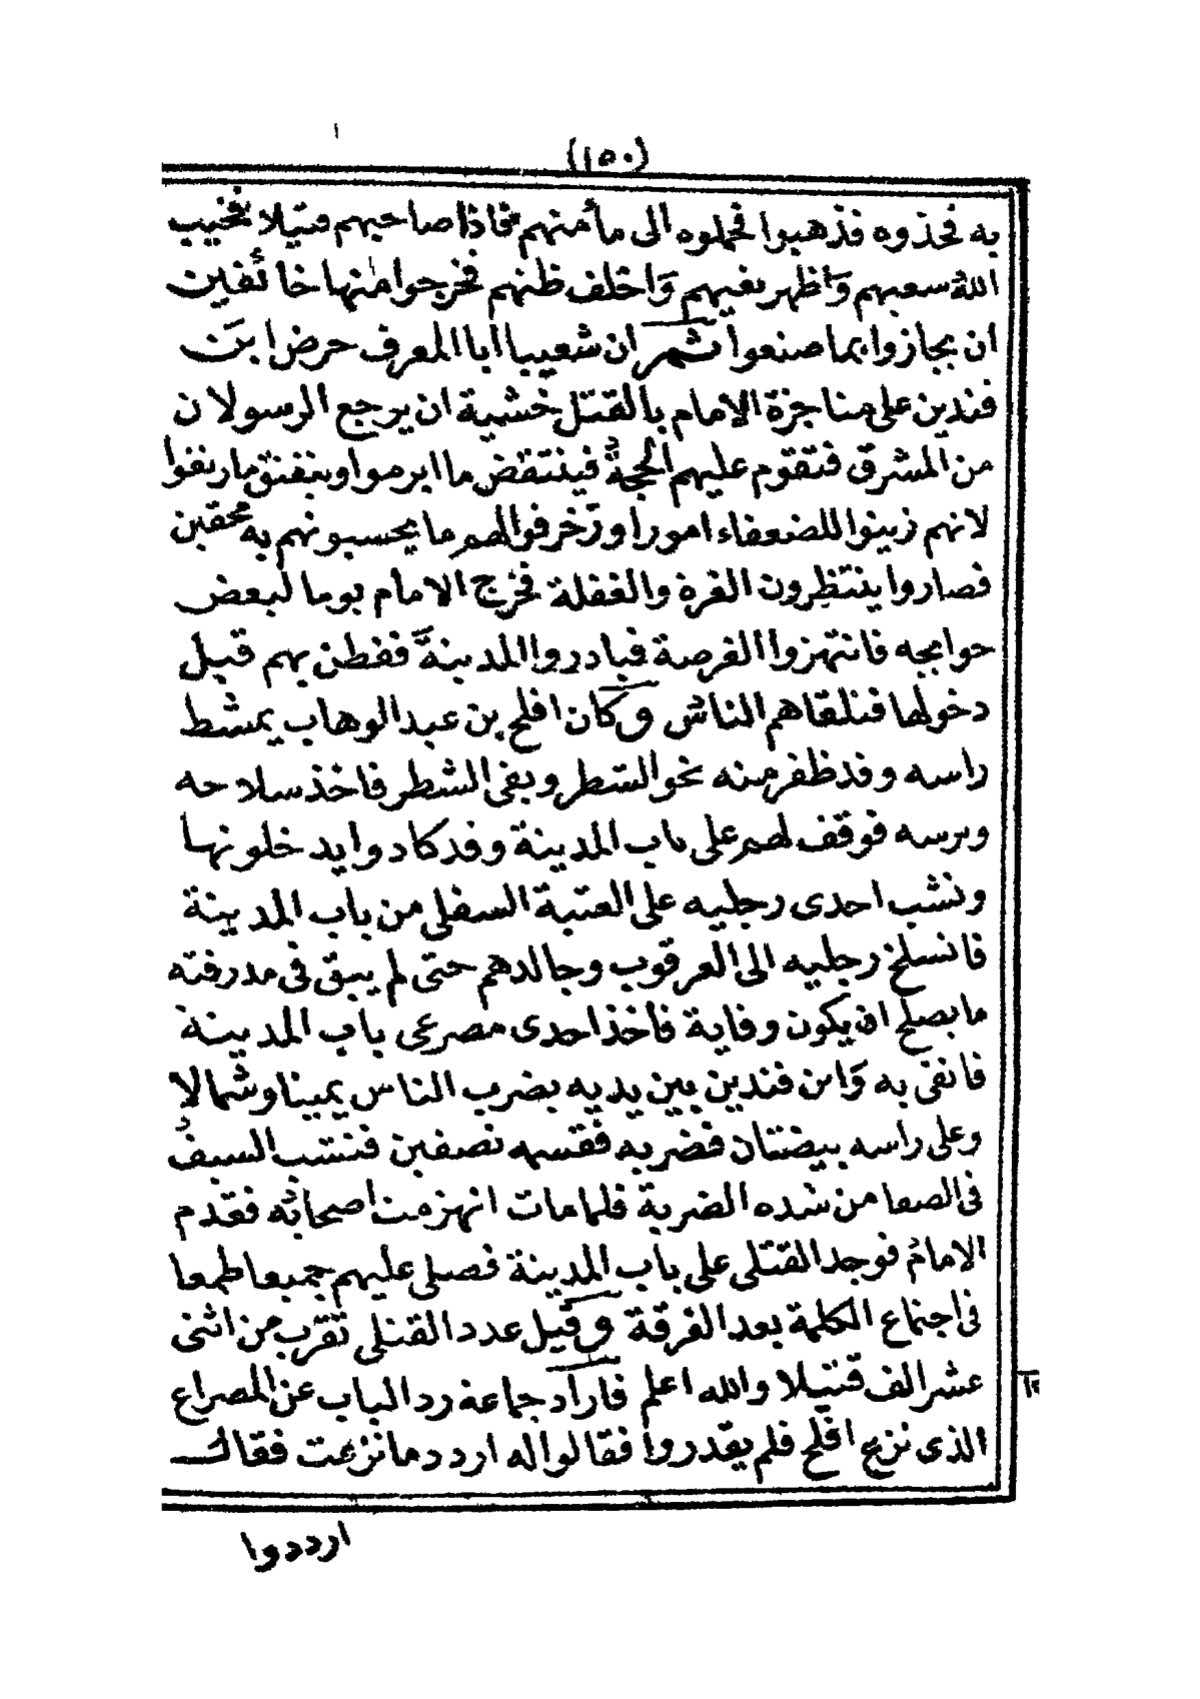 (١٥٠)
به فخذوه فذهبوا فحملوه الى مأمنهم فاذا صاحبهم قتيلا فخيب
الله سعيهم وَاظهر بغيهم وَاخلف ظنهم فخرجوا منها خائفين
ان يجازوا بما صنعوا ثم ان شعيبا ابا المعرف حرض ابن
فندين على مناجزة الامام بالقتل خشية ان يرجع الرسولان
من المشرق فتقوم عليهم الحجة فينتقض ما ابرموا وينفتق مارتقوا
لانهم زينوا للضعفاء امورا وزخرفوا لهم ما يحسبونهم به محقين
فصاروا ينتظرون الغرة والغفلة فخرج الامام يوما لبعض
حوايجه فانتهزوا الفرصة فبادروا المدينة ففطن بهم قبل
دخولها فتلقاهم الناس وكان افلح بن عبد الوهاب يمشط
راسه وقد ظفر منه نحو الشطر وبقى الشطر فاخذ سلاحه
وترسه فوقف لهم على باب المدينة وقد كادوا يدخلونها
ونشب احدى رجليه على العتبة السفلى من باب المدينة
فانسلخ رجليه الى العرقوب وجالدهم حتى لم يبق فى مدرقته
ما يصلح ان يكون وقاية فاخذ احدى مصرعى باب المدينة
فاتقى به وَابن فندين بين يديه يضرب الناس يمينا وشمالا
وعلى راسه بيضتان فضربه فقسمه نصفين فنشب السيف
فى الصفا من شده الضربة فلما مات انهزمت اصحابه فقدم
الامام فوجد القتلى على باب المدينة فصلى عليهم جميعا طمعا
فى اجتماع الكلمة بعد الفرقة وقيل عدد القتلى تقرب من اثنى
عشر الف قتيلا والله اعلم فاراد جماعة رد الباب عن المصراع
الذى نزع افلح فلم يقدروا فقالوا له اردد ما نزعت فقال
ارددوا